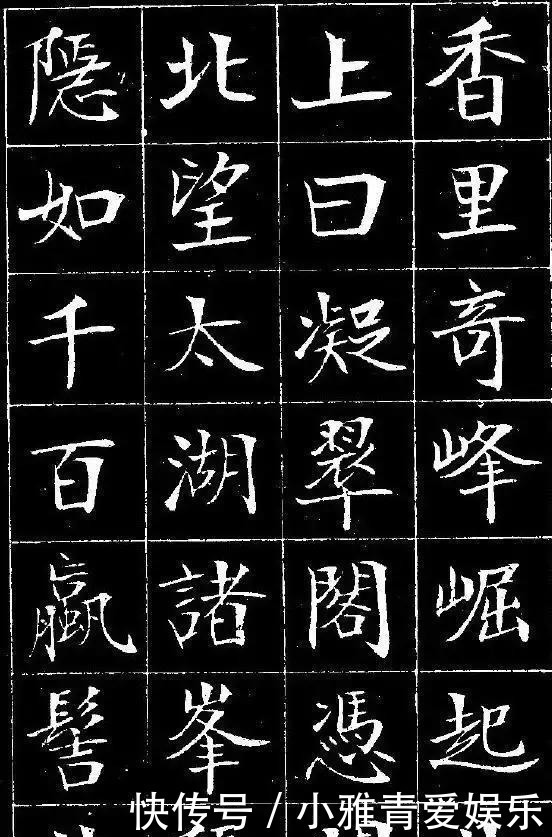 香里奇峰崛起
上曰凝翠閣憑
北望太湖諸峯
隱如千百
髻
快传号 / 小雅青爱娱乐